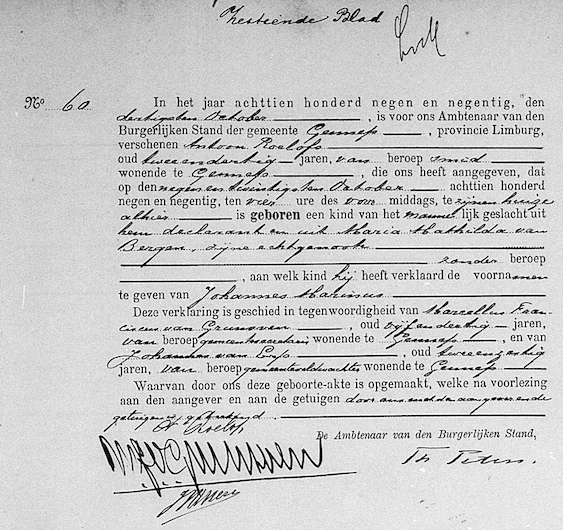 Zestiende Blad
No. 60
In het jaar achttien honderd negen en negentig, den
dertigsten October, is voor ons Ambtenaar van den
Burgerlijken Stand der gemeente Gennep, provincie Limburg,
verschenen Antoon Roelofs
oud tweeendertig jaren, van beroep smid
wonende te Gennep, die ons heeft aangegeven, dat
op den negenentwintigsten October achttien honderd
negen en negentig, ten vier ure des voor middags, te zijnen huize
alhier is geboren een kind van het mannelijk geslacht uit
hem declarant en uit Maria Mathilda van
Bergen, zijne echtgenoote
zonder beroep
, aan welk kind hij heeft verklaard de voornamen
te geven van Johannes Marinus
Deze verklaring is geschied in tegenwoordigheid van Marcellus Fran-
ciscus van Grunsven, oud vijfendertig jaren,
van beroep gemeentesecretaris wonende te Gennep, en van
Johannes van, oud tweeenzestig
jaren, van beroep gemeenteveldwachter wonende te Gennep
Waarvan door ons deze geboorte-akte is opgemaakt, welke na voorlezing
aan den aangever en aan de getuigen door ons met den aangever ende
getuigen is geteekend.
A Roelofs
De Ambtenaar van den Burgerlijken Stand,